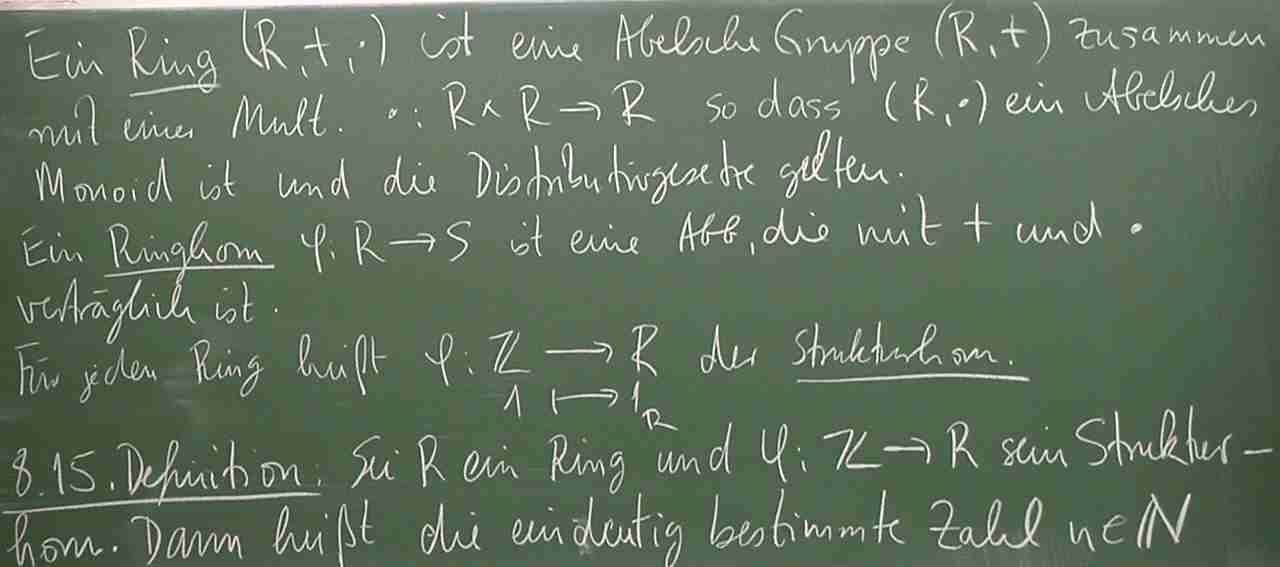 Ein Ring (R,+,·) ist eine Abelsche Gruppe (R,+) zusammen
mit einer Mult. ·: R×R → R so dass (R,·) ein Abelsches
Monoid ist und die Distributivgesetze gelten.
Ein Ringhom φ: R → S ist eine Abb, die mit + und ·
verträglich ist.
Für jeden Ring heißt φ: ℤ → R der Strukturhom.
1 ↦ 1_R
8.15. Definition: Sei R ein Ring und φ: ℤ → R sein Struktur-
hom. Dann heißt die eindeutig bestimmte Zahl n∈ℕ